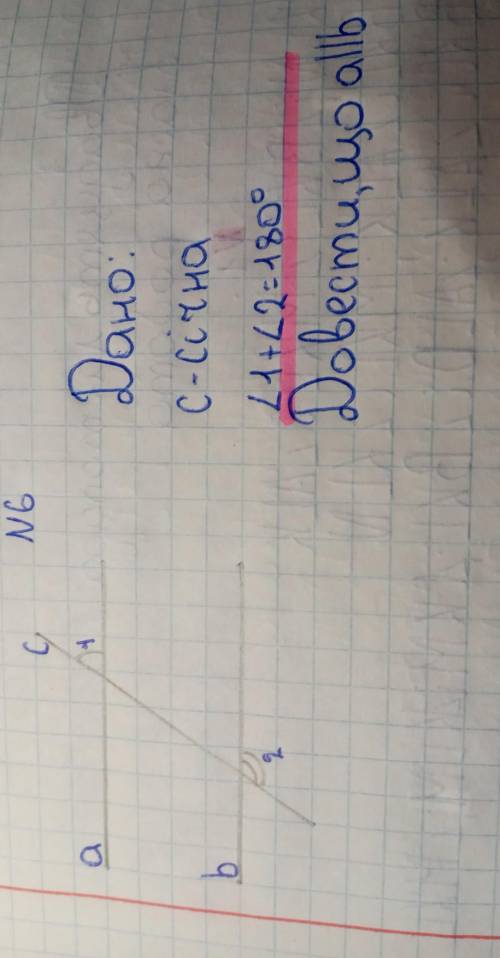 N6
Дано:
c - січна
∠1+∠2=180°
Довести, що a||b
c
1
a
2
b